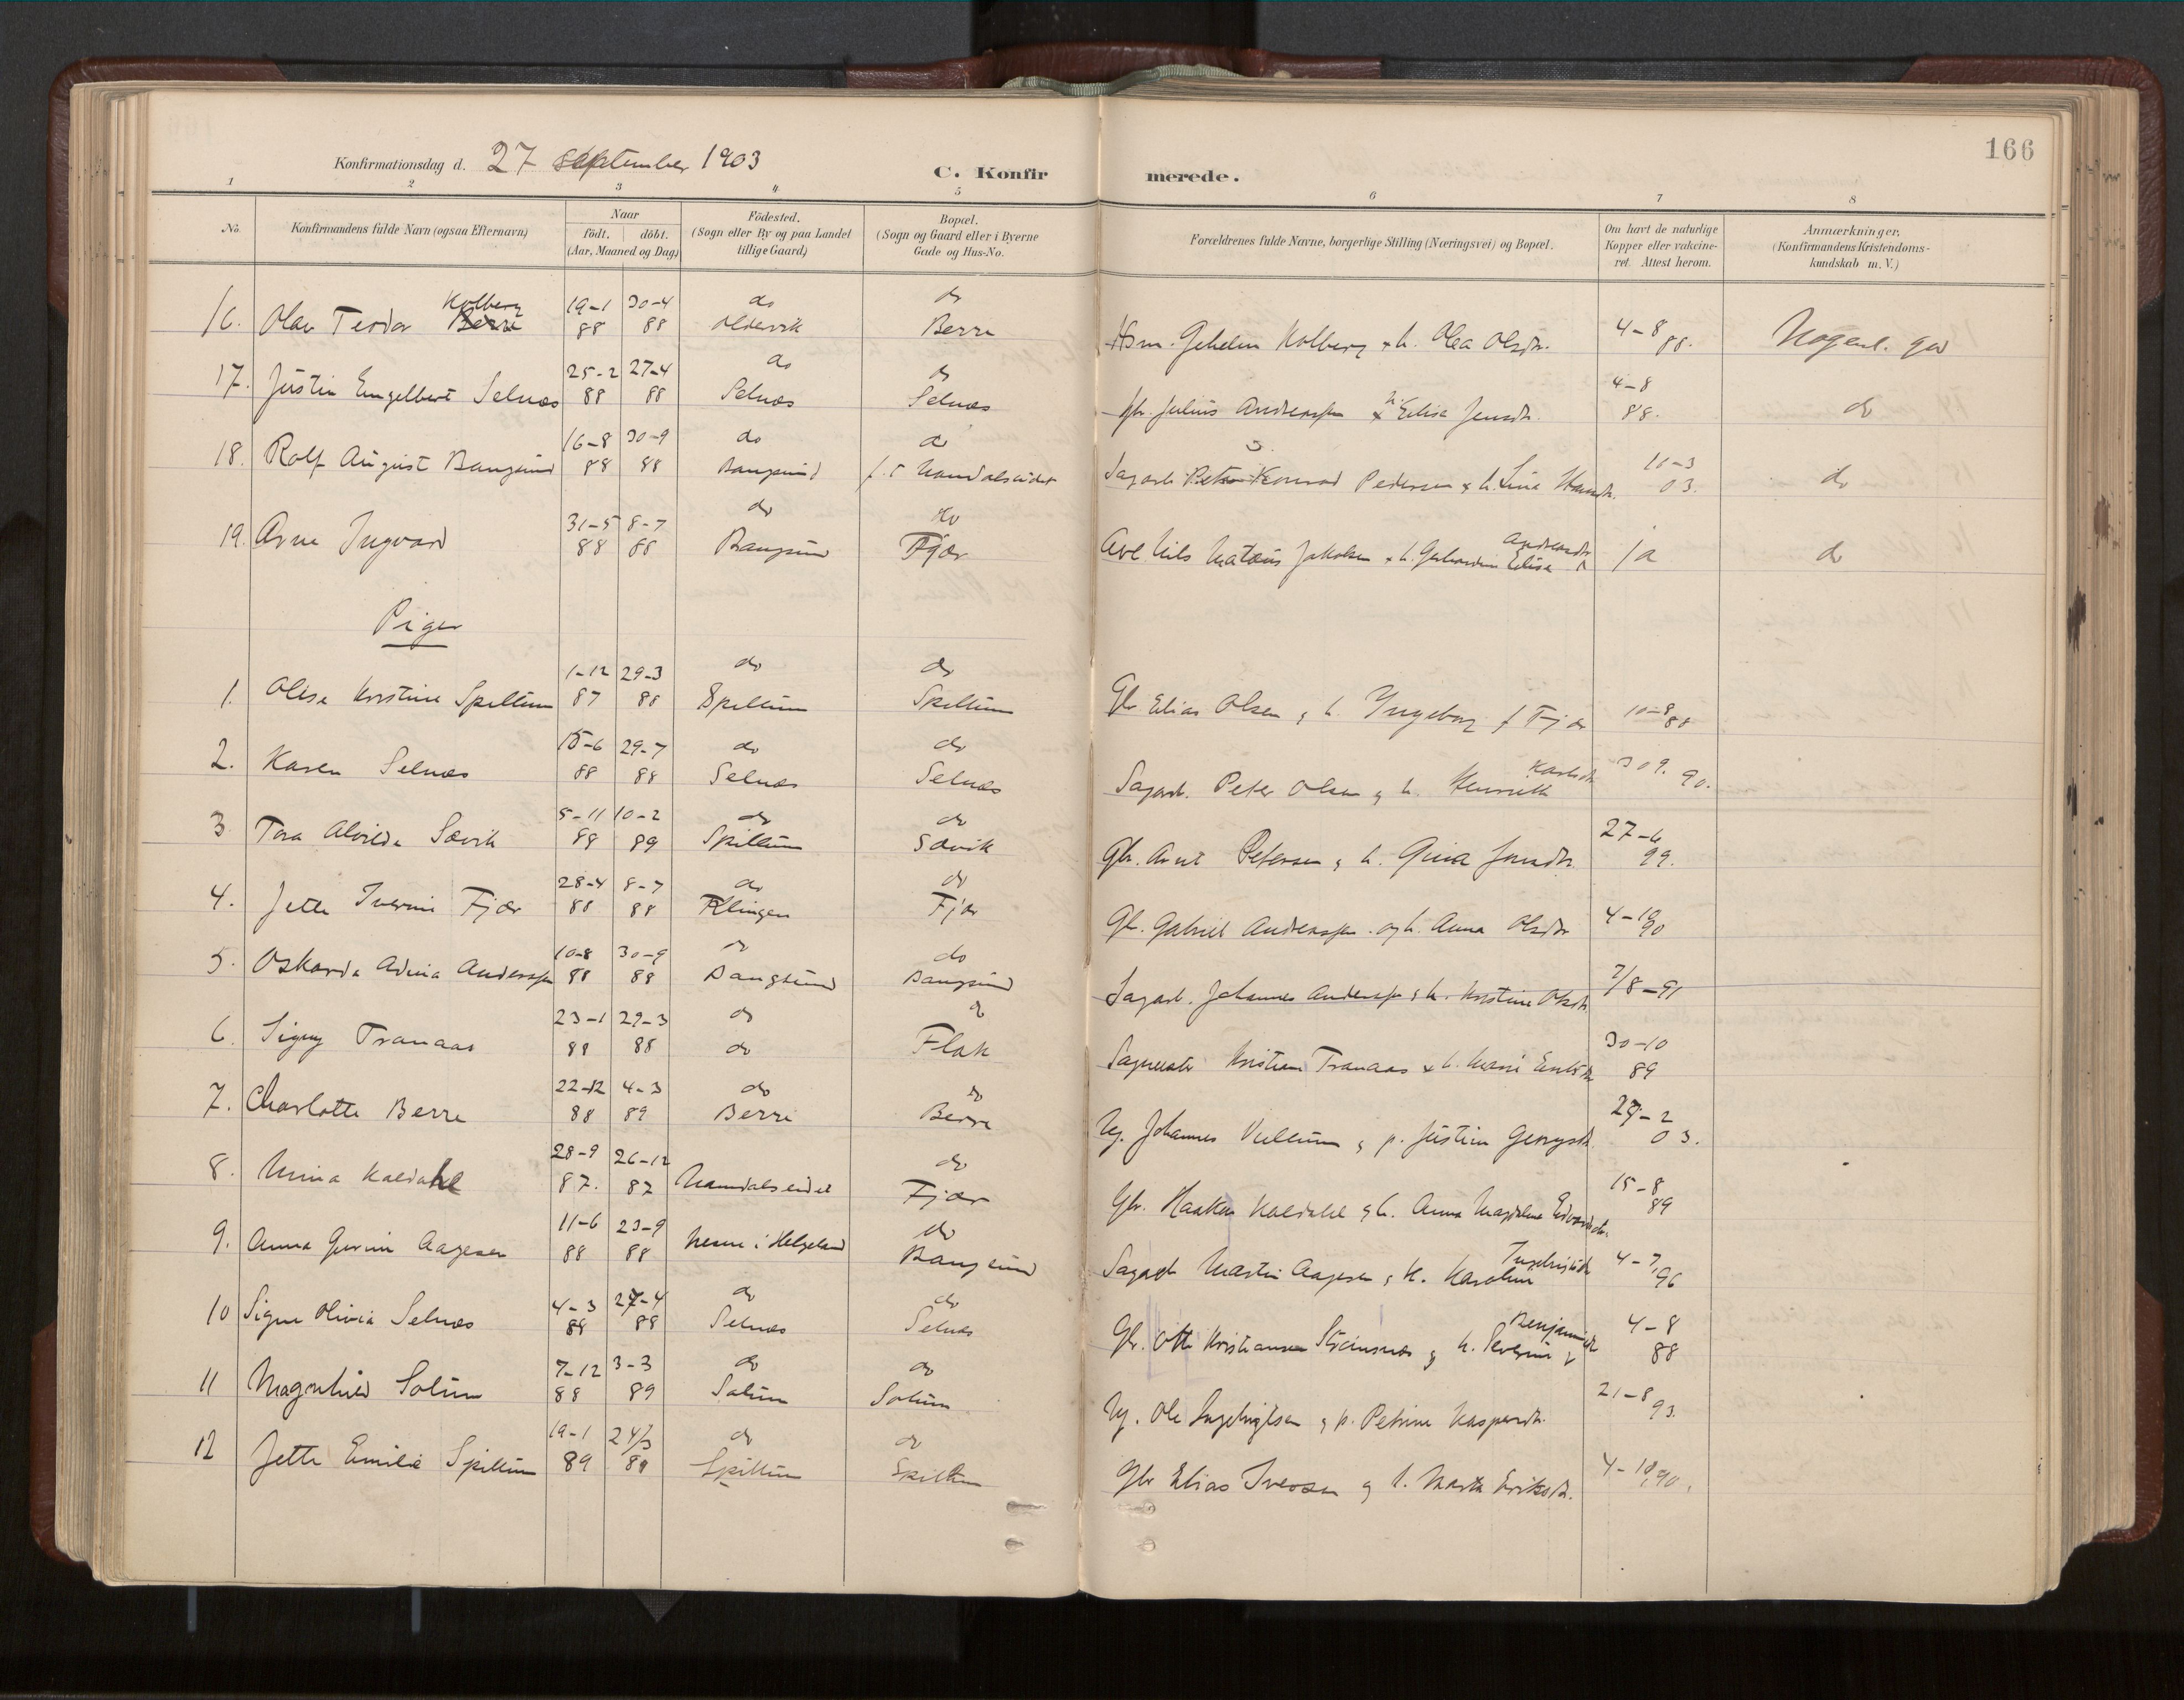 166
Konfirmationsdag d. 27 september 1903
C. Konfirmerede.
1 2 3 4 5 6 7 8
No.
Konfirmandens fulde Navn (ogsaa Efternavn)
Naar
födt. döbt.
(Aar, Maaned og Dag)
Födested.
(Sogn eller By og paa Landet
tillige Gaard)
Bopæl.
(Sogn og Gaard eller i Byerne
Gade og Hus-No.
Forældrenes fulde Navne, borgerlige Stilling (Næringsvei) og Bopæl.
Om havt de naturlige
Kopper eller vakcine-
ret. Attest herom.
Anmærkninger.
(Konfirmandens Kristendoms-
kundskab m. V.)
Kolberg 19-1 30-4 do do
16. Olav Teodor Berre 88 88 Oldervik Berre Hsm. Kolberg & h. Olea Olsdtr. 4-8 88. Nogenl. god
25-2 27-4 do do 4-8
17. Justin Engelbert Selnæs 88 88 Selnæs Selnæs Gbr. Julius Anderssen & h. Elisa Jensdtr. 88. do
16-8 30-9 do do
18. Rolf August Bangsund 88 88 Bangsund f. t. Namdalseidet Sagarb. Peter Konrad Pedersen & h. Lina Hansdtr. 11-3 03. do
31-5 8-7 do do
19. Arne Ingvard 88 88 Bangsund Fjær Arb. Nils Mataus Jakobsen & h. Elisa Andersdtr ja do
Piger
1-12 29-3 do do
1. Olise Kristine Spillum 87 88 Spillum Spillum Gbr Elias Olsen & h. Ingeborg f Fjær 10-8 88
15-6 29-7 do do
2. Karen Selnæs 88 88 Selnæs Selnæs Sagarb. Peter Olsen & h. Karlsdtr 30 9. 90.
5-11 10-2 do do 27-6
3 Tora Alvilda Sævik 88 89 Spillum Sævik Gbr. Arnt Petersen & h. Gina Jonsdtr. 99.
28-4 8-7 do do
4. Jette Fjær 88 88 Klingen Fjær Gbr. Gabriel Anderssen og h. Anna Olsdtr 4-10 90
10-8 30-9 do do
5. Oskarda Adina Anderssen 88 88 Bangsund Bangsund Sagarb. Johannes Anderssen & h. Kristine Olsdtr. 7/8-91
23-1 29-3 do do 30-10
6. Signy Tranaas 88 88 do Flak Kristian Tranaas & h. 89
22-12 4-3 do do
7. Charlotte Berre 88 89 Berre Berre Ug. Johannes Vullum & p. Justine Georgsdtr. 03.
28-9 26-12 do
8. Minna Kaldahl 87. 87 Namdalseidet Fjær Gbr. Haakon Kaldahl & h. Anna Magdalena Edvardsdtr. 15-8 89
11-6 23-9 do
9. Anna Aagesen 88 88 Nesne i Helgeland Bangsund Sagarb Martin Aagesen & h. Karoline Ingebrigtsdtr 4-7 96
4-3 27-4 do do
10 Signe Olivia Selnæs 88 88 Selnæs Selnæs Gbr. Otto Kristiansen Strømsnæs & h. Severine Benjaminsdtr 4-8 88
7-12 3-3 do do
11 Magnhild Solum 88 89 Solum Solum Ug. Ole Ingebrigtsen & p. Petrine Kaspersdtr. 21-8 93.
19-1 24/3 do do
12 Jette Emilie Spillum 89 89 Spillum Spillum Gbr Elias Iversen & h. Marta Eriksdtr. 4-10 90.